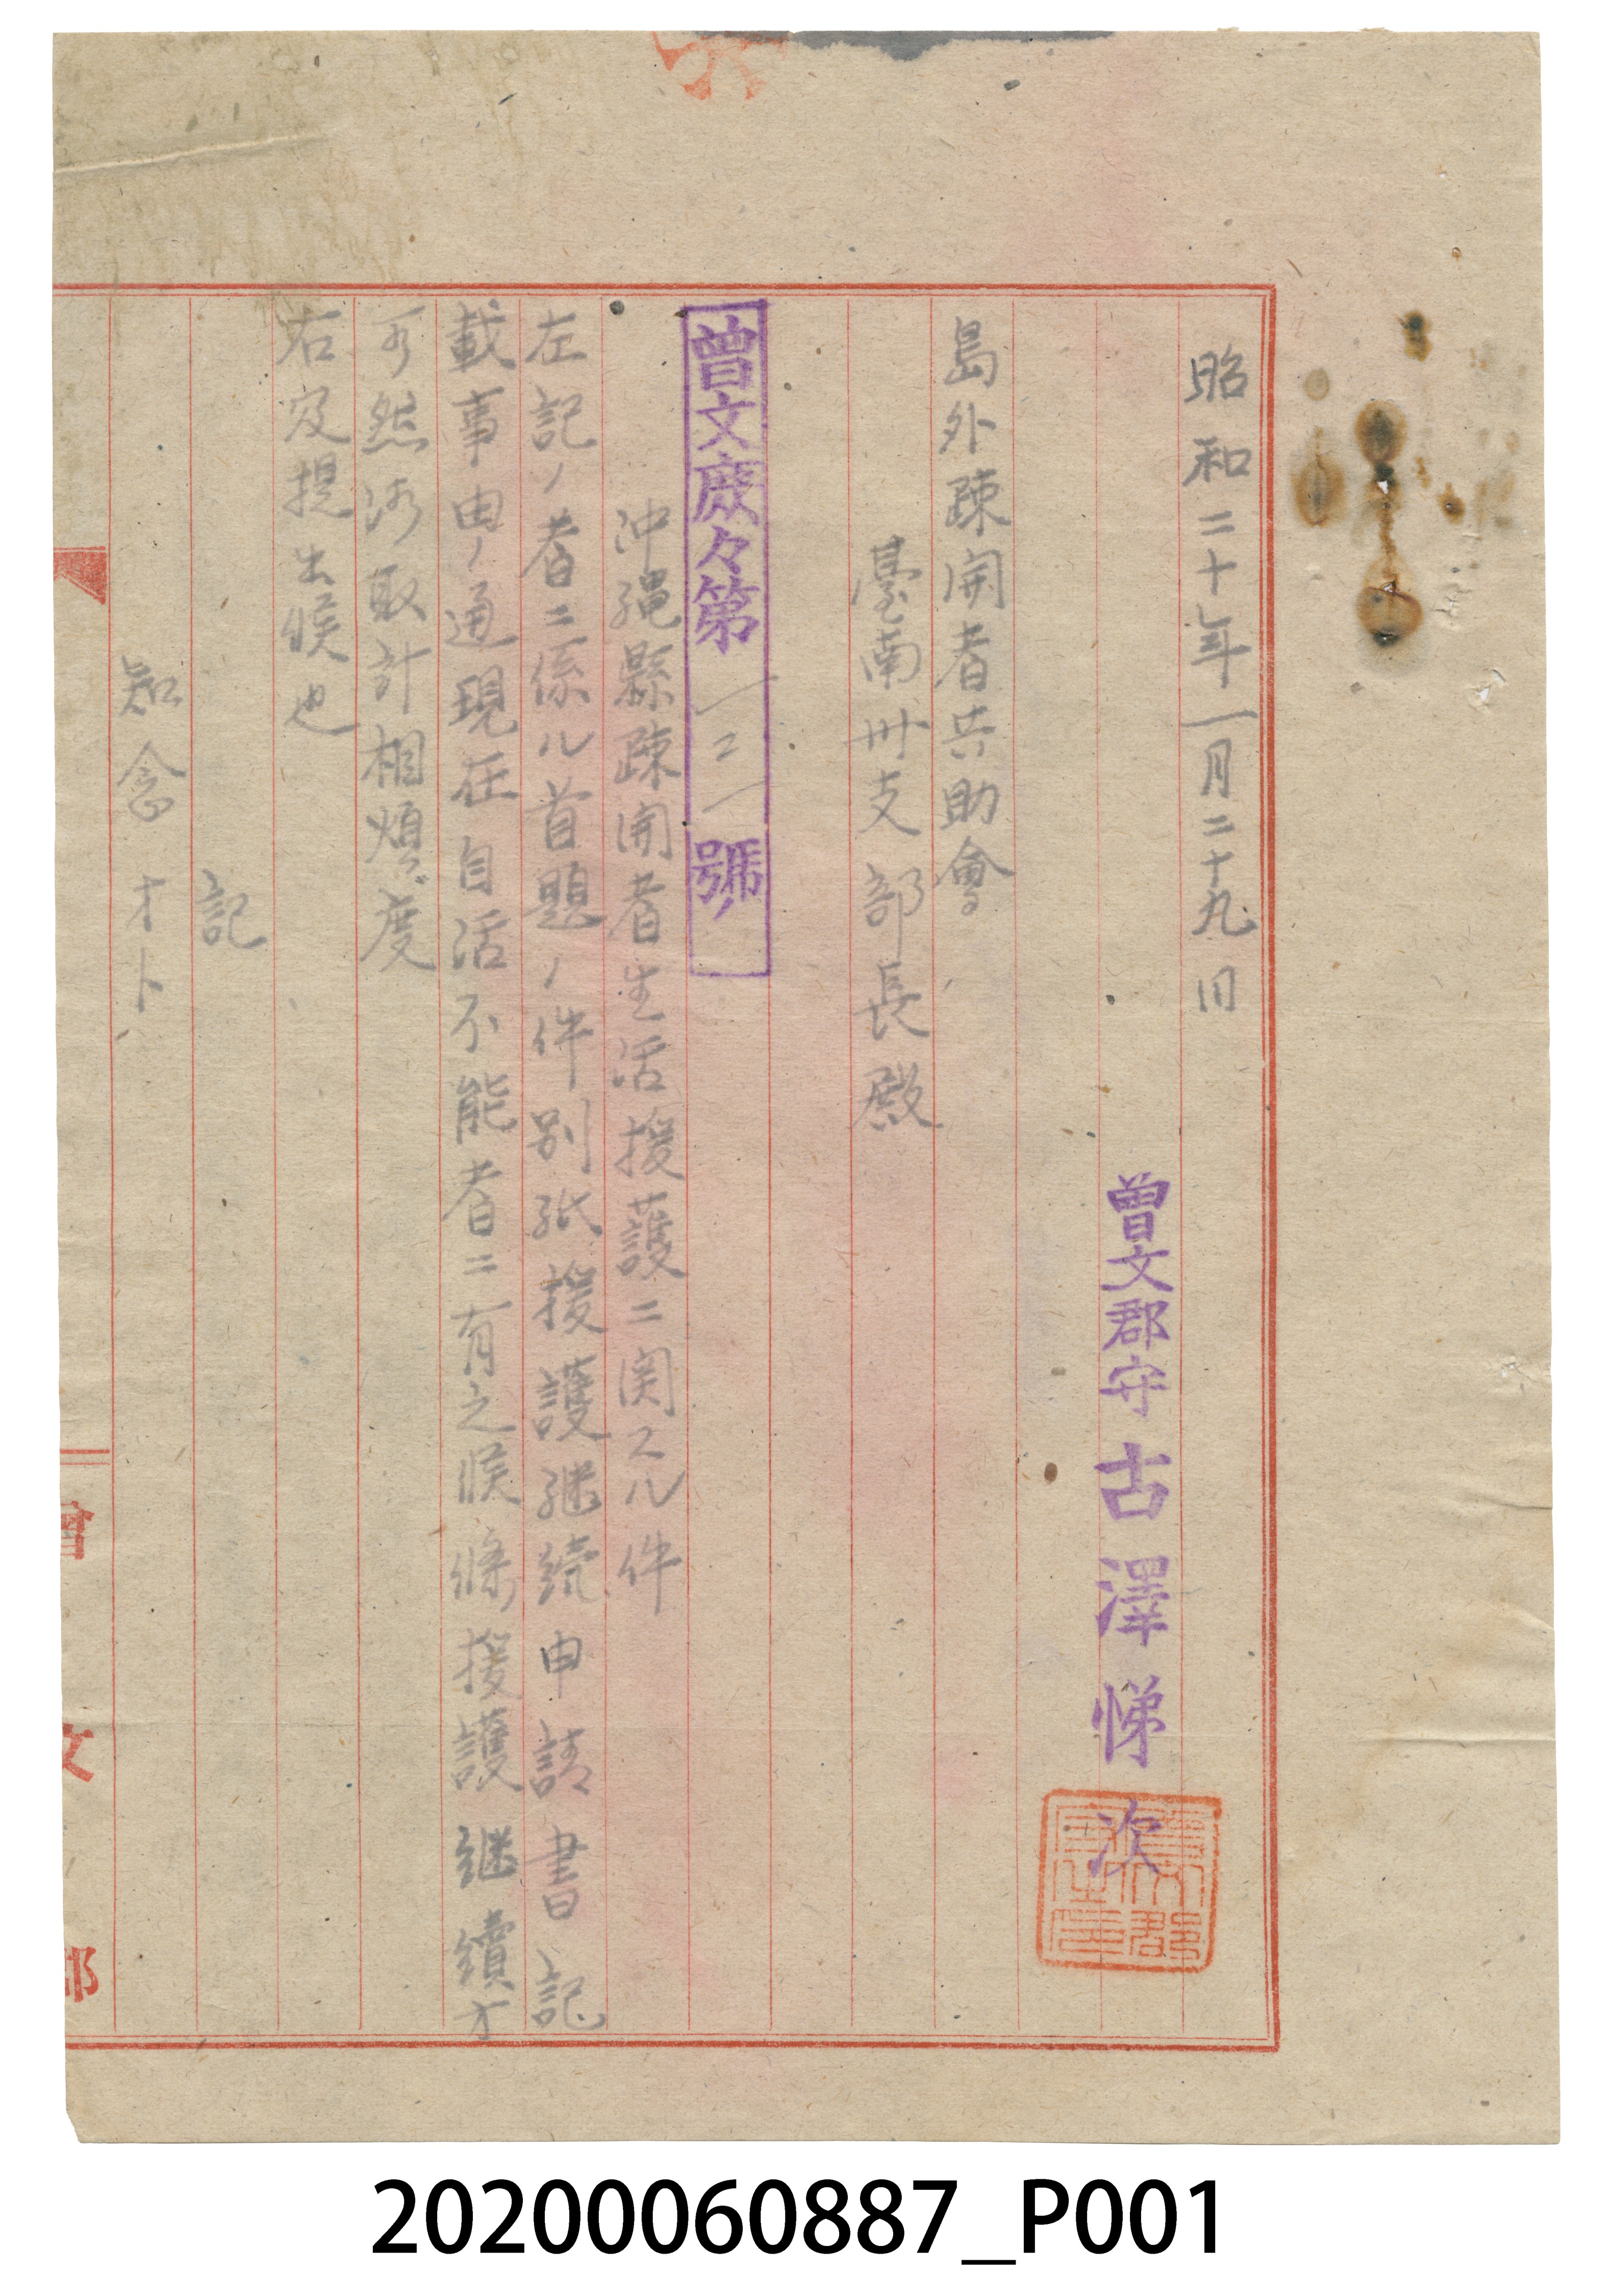 昭和二十年一月二十九日
曾文郡守 古澤悌次
島外疎開者共助會
臺南州支部長殿
曾文庶々第一二一號ノ
沖縄縣疎開者生活援護ニ関スル件
左記ノ者ニ係ル首題ノ件別紙援護継続申請書記
載事由ノ通現在自活不能者ニ有之候條援護継續方
可然御取計相煩度
右及提出候也
記
知念オト
曾文郡
20200060887_P001